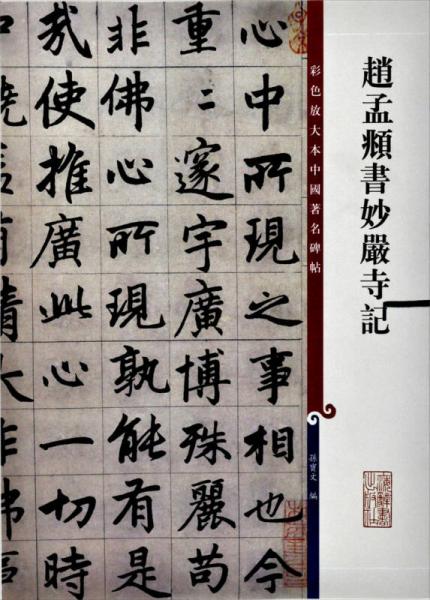 趙孟頫書妙嚴寺記
彩色放大本中國著名碑帖
孫寶文 編
上海辭書出版社
心中所現之事相也今
重〻邃宇廣博殊麗苟
非佛心所現孰能有是
哉使推廣此心一切時